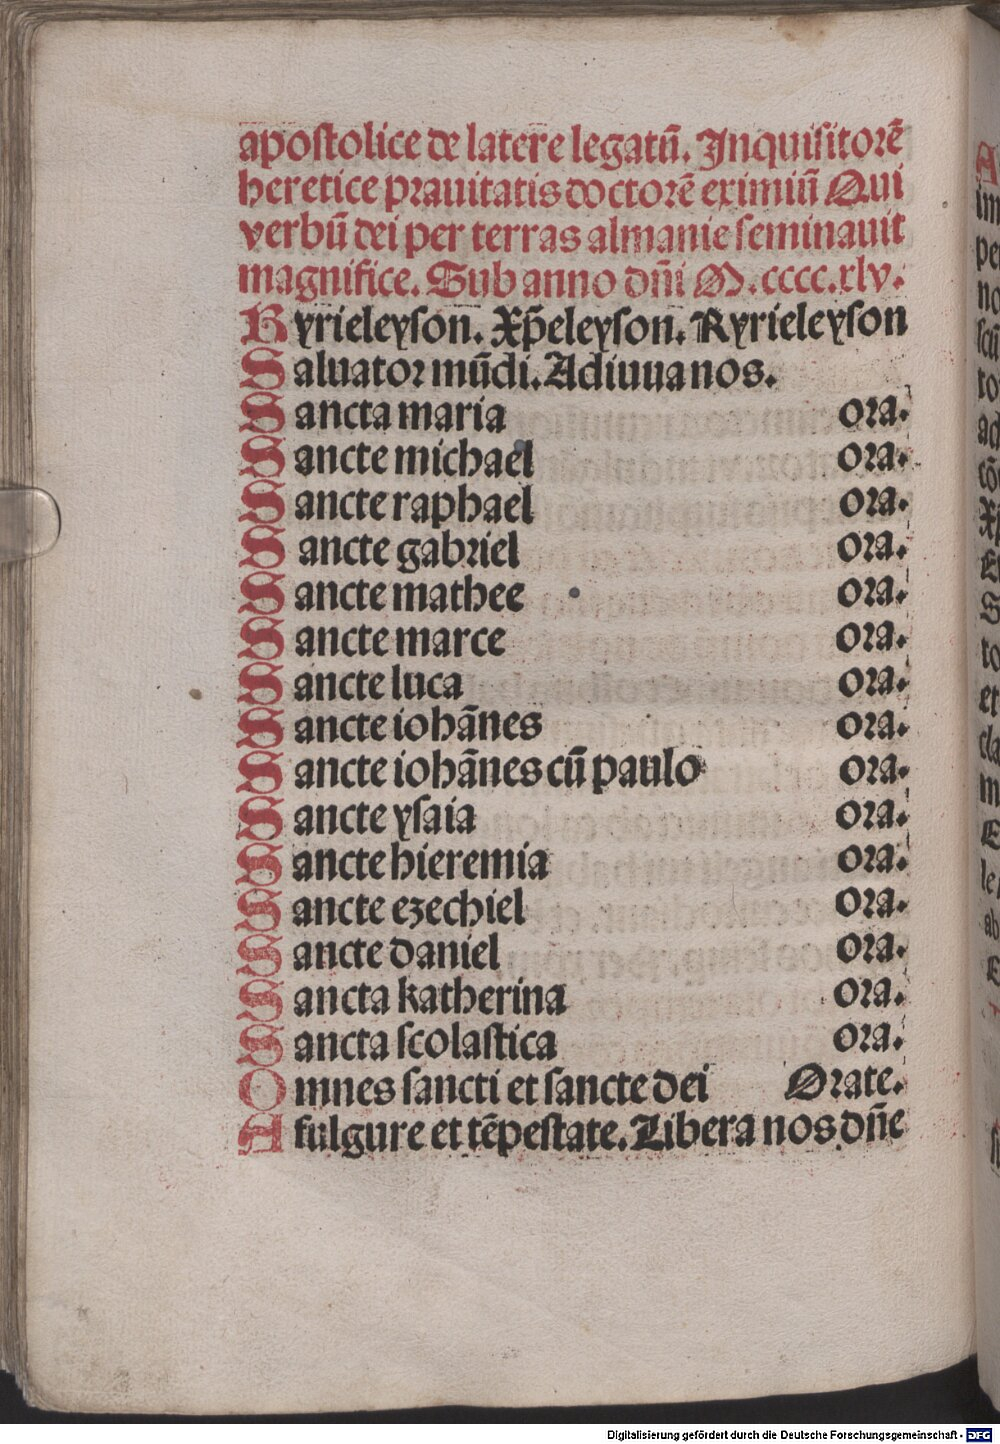 apostolice de latere legatū. Inquisitorē
heretice prauitatis doctorē eximiū Qui
verbū dei per terras almanie seminauit
magnifice. Sub anno dn̄i M.cccc.xlv.
Kyrieleyson. Xp̄eleyson. Kyrieleyson
Saluator mūdi. Adiuua nos.
Sancta maria ora.
Sancte michael ora.
Sancte raphael ora.
Sancte gabriel ora.
Sancte mathee ora.
Sancte marce ora.
Sancte luca ora.
Sancte iohānes ora.
Sancte iohānes cū paulo ora.
Sancte ysaia ora.
Sancte hieremia ora.
Sancte ezechiel ora.
Sancte daniel ora.
Sancta katherina ora.
Sancta scolastica ora.
Omnes sancti et sancte dei Orate.
A fulgure et tēpestate. Libera nos dn̄e
Digitalisierung gefördert durch die Deutsche Forschungsgemeinschaft - DFG